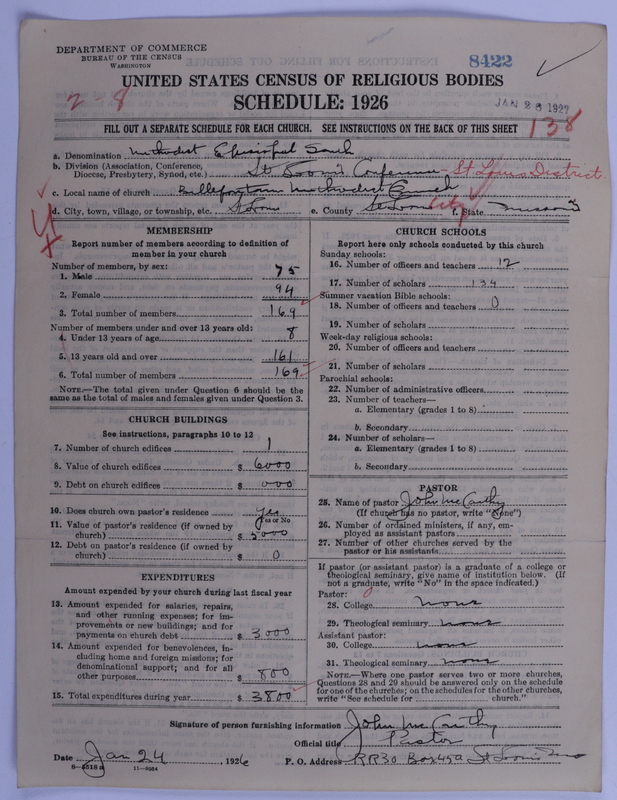 DEPARTMENT OF COMMERCE
BUREAU OF THE CENSUS
WASHINGTON
8422
UNITED STATES CENSUS OF RELIGIOUS BODIES
2-8
SCHEDULE: 1926
JAN 28 1927
FILL OUT A SEPARATE SCHEDULE FOR EACH CHURCH. SEE INSTRUCTIONS ON THE BACK OF THIS SHEET
138
a. Denomination Methodist Episcopal South
b. Division (Association, Conference, Diocese, Presbytery, Synod, etc.) St Louis Conference - St Louis District.
c. Local name of church Methodist Church
d. City, town, village, or township, etc. St Louis e. County St Louis City f. State Missouri
MEMBERSHIP
Report number of members according to definition of
member in your church
Number of members, by sex:
1. Male 75
2. Female 94
3. Total number of members 169
Number of members under and over 13 years old:
4. Under 13 years of age 8
5. 13 years old and over 161
6. Total number of members 169
NOTE.—The total given under Question 6 should be
same as the total of males and females given under Question 3.
CHURCH BUILDINGS
See instructions, paragraphs 10 to 12
7. Number of church edifices 1
8. Value of church edifices $ 6000
9. Debt on church edifices $ 000
10. Does church own pastor's residence yes
Yes or No
11. Value of pastor's residence (if owned by
church) $ 5000
12. Debt on pastor's residence (if owned by
church) $ 0
EXPENDITURES
Amount expended by your church during last fiscal year
13. Amount expended for salaries, repairs,
and other running expenses; for im-
provements or new buildings; and for
payments on church debt $ 3000
14. Amount expended for benevolences, in-
cluding home and foreign missions; for
denominational support; and for all
other purposes $ 800
15. Total expenditures during year $ 3800
CHURCH SCHOOLS
Report here only schools conducted by this church
Sunday schools:
16. Number of officers and teachers 12
17. Number of scholars 134
Summer vacation Bible schools:
18. Number of officers and teachers 0
19. Number of scholars
Week-day religious schools:
20. Number of officers and teachers
21. Number of scholars
Parochial schools:
22. Number of administrative officers
23. Number of teachers—
a. Elementary (grades 1 to 8)
b. Secondary
24. Number of scholars—
a. Elementary (grades 1 to 8)
b. Secondary
PASTOR
25. Name of pastor John McCarthy
(If church has no pastor, write "None")
26. Number of ordained ministers, if any, em-
ployed as assistant pastors
27. Number of other churches served by the
pastor or his assistants
If pastor (or assistant pastor) is a graduate of a college or
theological seminary, give name of institution below. (If
not a graduate, write "No" in the space indicated.)
Pastor:
28. College none
29. Theological seminary none
Assistant pastor:
30. College none
31. Theological seminary none
NOTE.—Where one pastor serves two or more churches,
Questions 28 and 29 should be answered only on the schedule
for one of the churches; on the schedules for the other churches,
write "See schedule for church."
Signature of person furnishing information John McCarthy
Official title Pastor
Date Jan 24, 1926 P. O. Address RR30 Box 49a St Louis Mo
11—9064